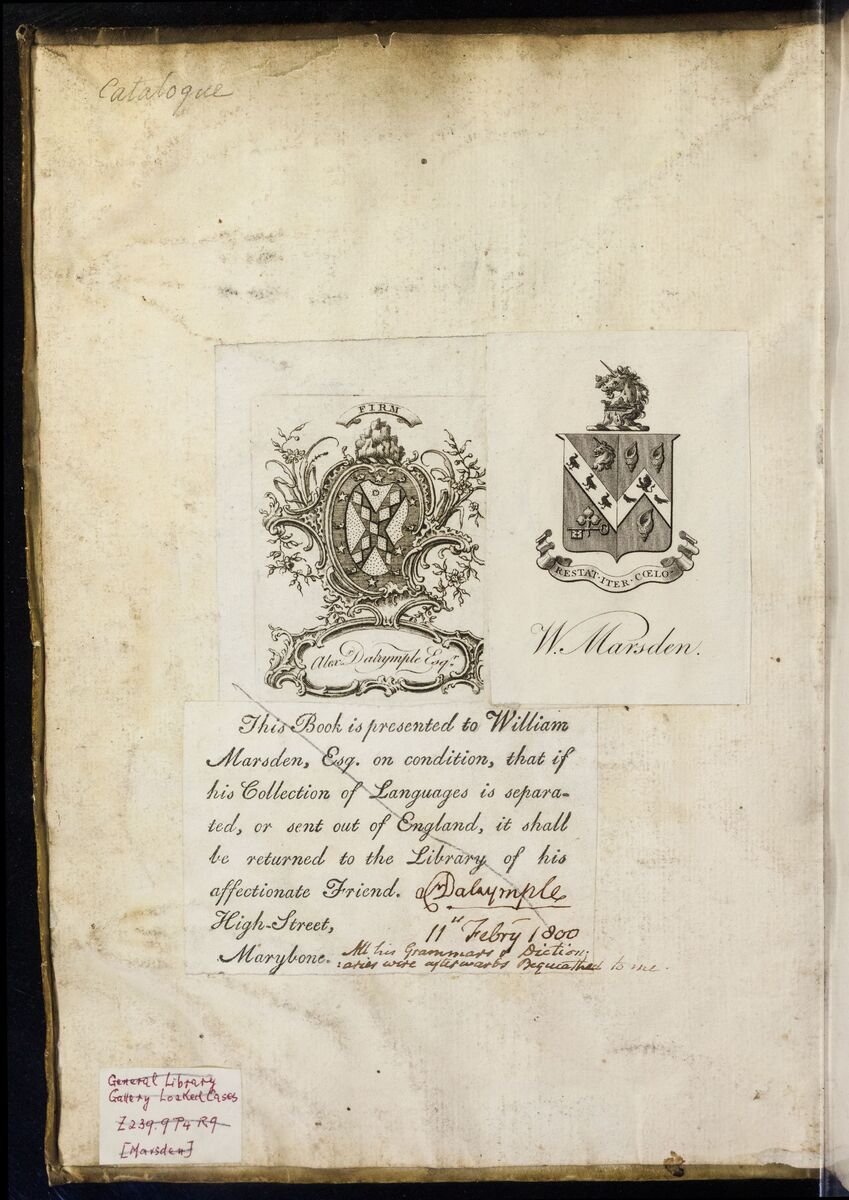 Catalogue
FIRM
Alexr. Dalrymple Esqr.
RESTAT·ITER·CŒLO
W. Marsden.
This Book is presented to William
Marsden, Esq. on condition, that if
his Collection of Languages is separa-
ted, or sent out of England, it shall
be returned to the Library of his
affectionate Friend. Dalrymple
High-Street, 11th Febry 1800
Marybone. All his Grammars & Diction:
:aries were afterwards Bequeathed to me.
General Library
Gallery Locked Cases
Z239.9 P4 R9
[Marsden]